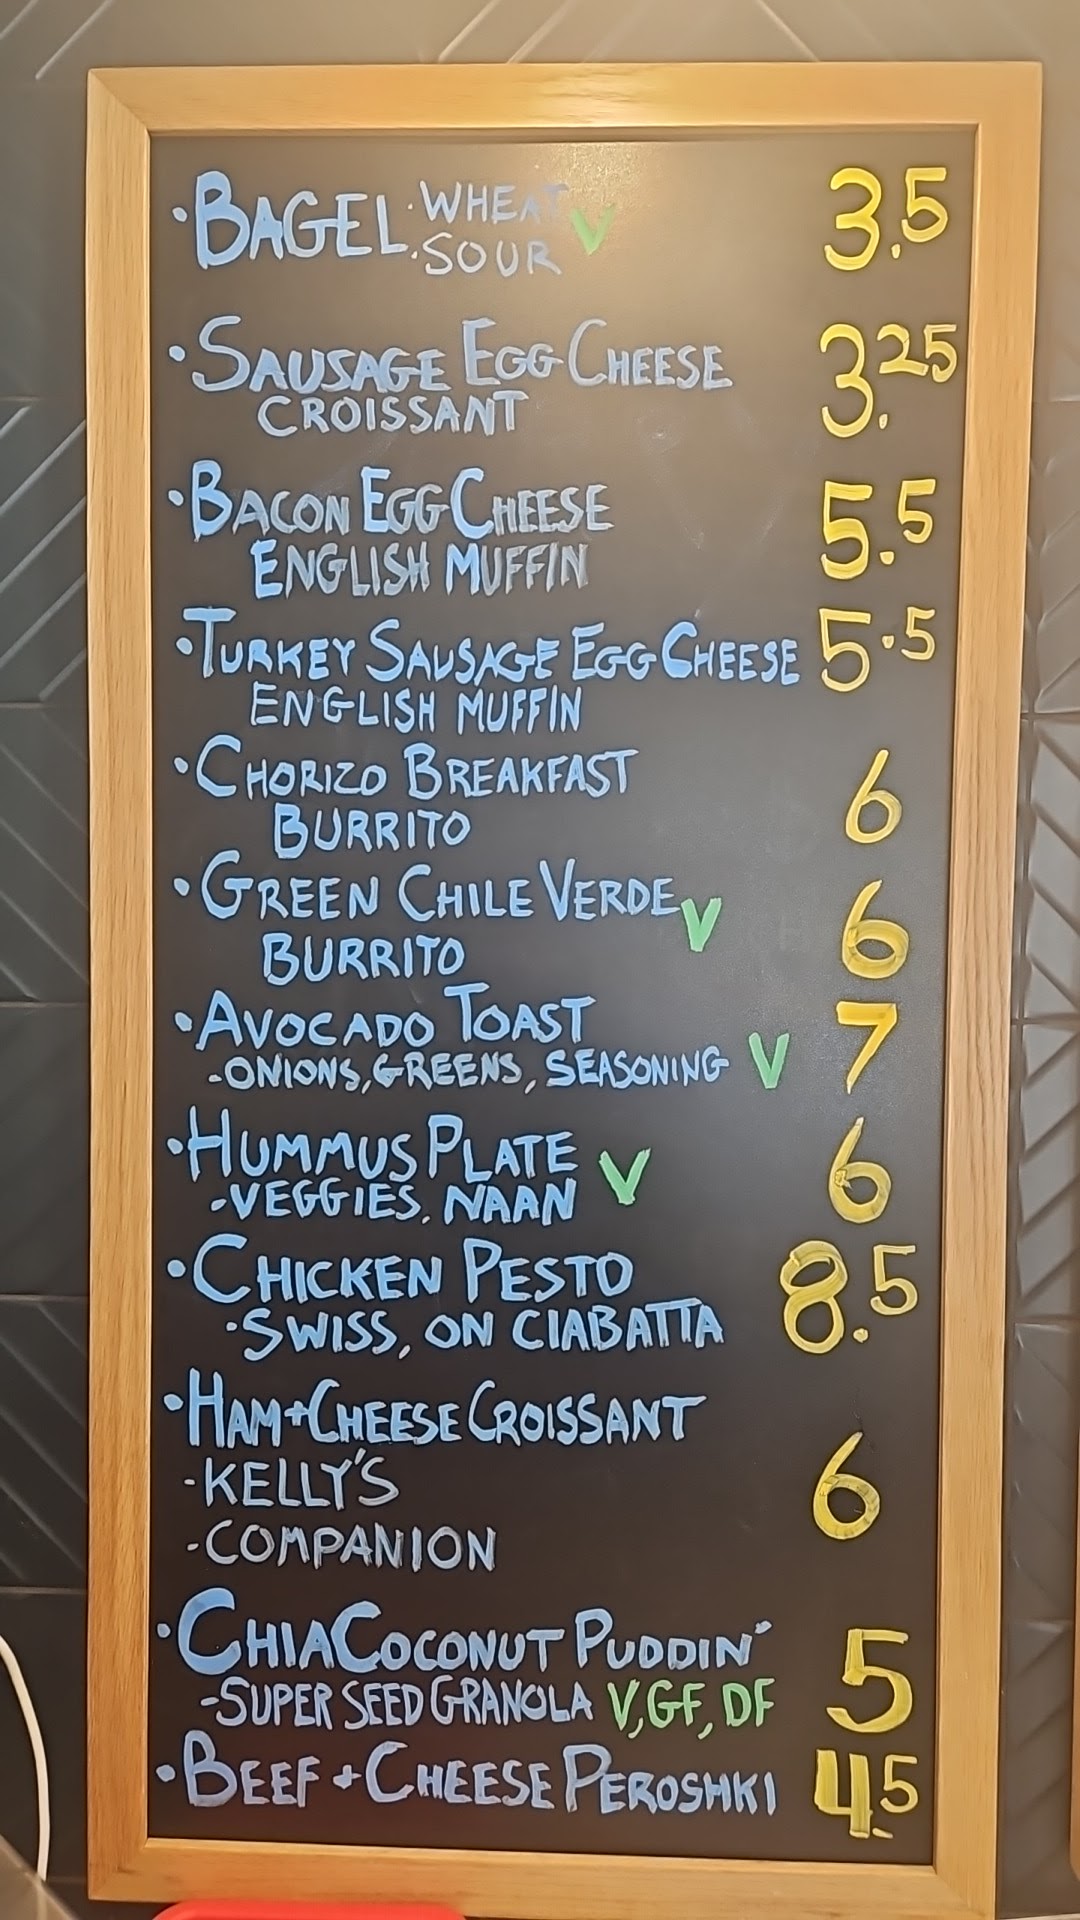 ·BAGEL ·WHEAT V 3.5
·SOUR
·SAUSAGE EGG CHEESE 3.25
CROISSANT
·BACON EGG CHEESE 5.5
ENGLISH MUFFIN
·TURKEY SAUSAGE EGG CHEESE 5.5
ENGLISH MUFFIN
·CHORIZO BREAKFAST 6
BURRITO
·GREEN CHILE VERDE V 6
BURRITO
·AVOCADO TOAST 7
-ONIONS, GREENS, SEASONING V
·HUMMUS PLATE V 6
-VEGGIES, NAAN
·CHICKEN PESTO 8.5
·SWISS, ON CIABATTA
·HAM+CHEESE CROISSANT
-KELLY'S 6
-COMPANION
·CHIA COCONUT PUDDIN' 5
-SUPER SEED GRANOLA V, GF, DF
·BEEF + CHEESE PEROSHKI 4.5